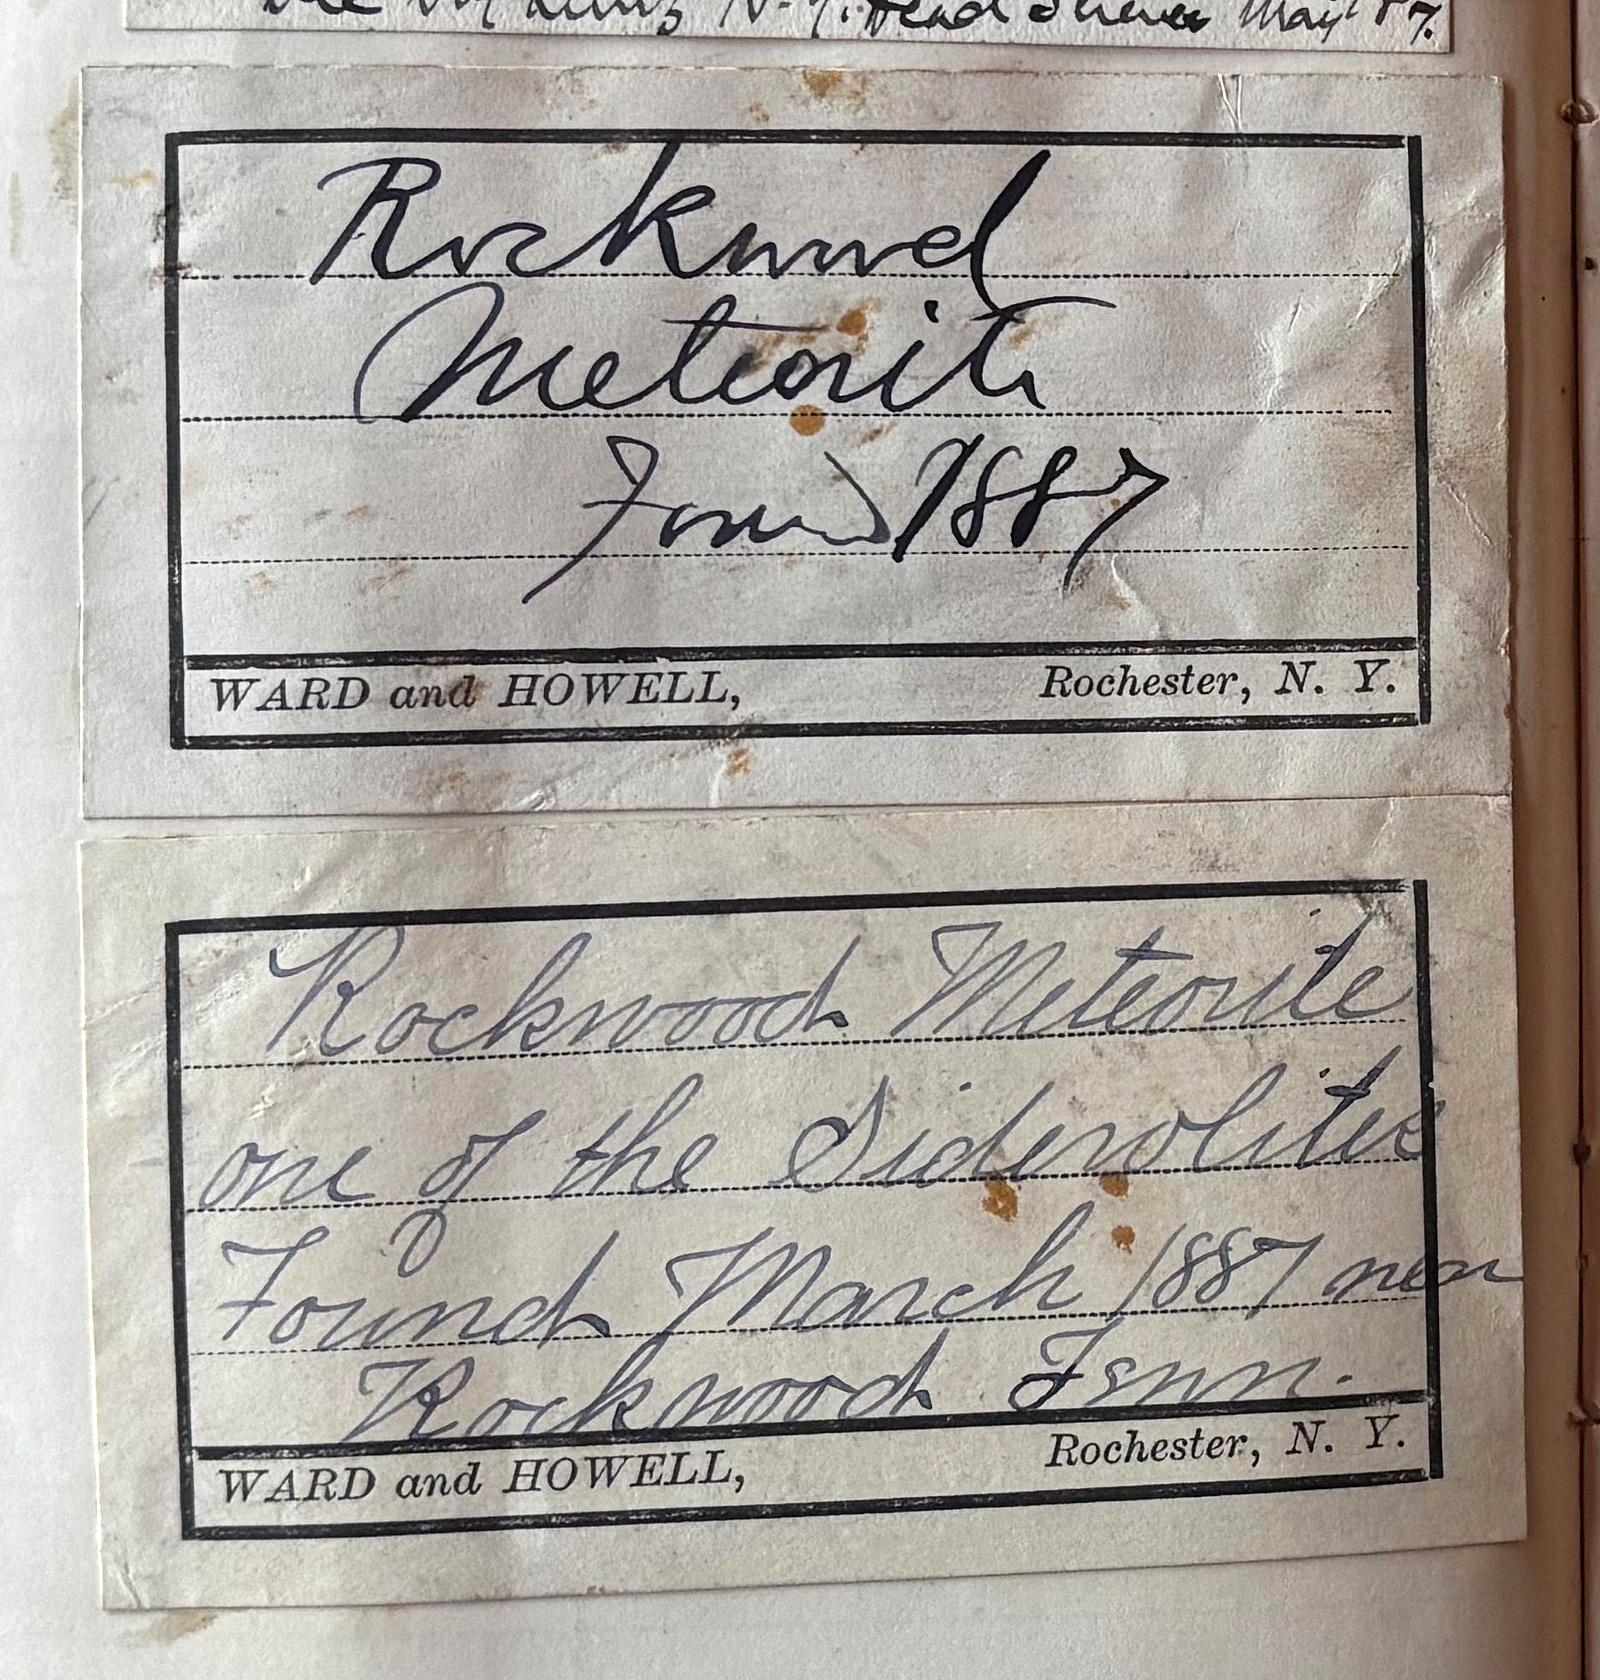 N. Y. Head Science May 87.
Rockwood
Meteorite
Found 1887
WARD and HOWELL, Rochester, N. Y.
Rockwood Meteorite
one of the Siderolites
Found March 1887 near
Rockwood Tenn.
WARD and HOWELL, Rochester, N. Y.